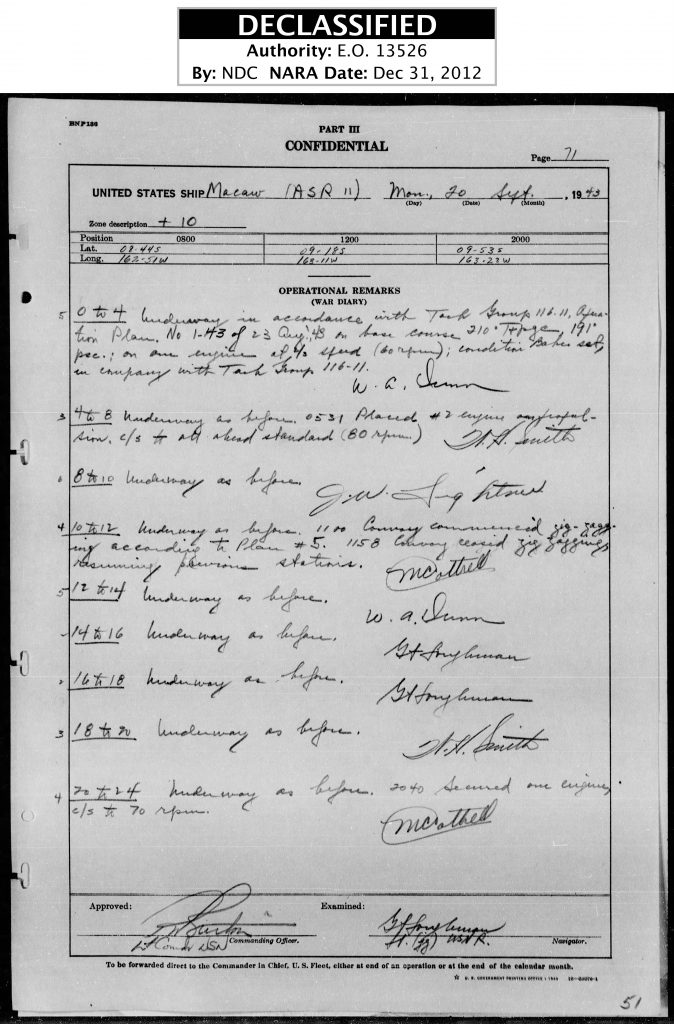 DECLASSIFIED
Authority: E.O. 13526
By: NDC NARA Date: Dec 31, 2012
BNP136
PART III
CONFIDENTIAL
Page 71
UNITED STATES SHIP Macaw (ASR 11) Mon., 20 Sept. , 1943
(Day) (Date) (Month)
Zone description + 10
Position 0800 1200 2000
Lat. 08-44S 09-18S 09-53S
Long. 162-51W 163-11W 163-23W
OPERATIONAL REMARKS
(WAR DIARY)
5 0 to 4 Underway in accordance with Task Group 116.11, Opera-
tion Plan, No 1-43 of 23 Aug, '43 on base course 210° T+pgc, 191°
psc.; on one engine at 2/3 speed (60 rpm); condition Baker set,
in company with Task Group 116-11.
W. A. Dunn
3 4 to 8 Underway as before. 0531 Placed #2 engine on propul-
sion. c/s to all ahead standard (80 rpm)
W. H. Smith
8 to 10 Underway as before.
J. W.
4 10 to 12 Underway as before. 1100 Convoy commenced zig-zagg-
ing according to Plan #5. 1158 Convoy ceased zig zagging,
resuming previous stations.
5 12 to 14 Underway as before.
W. A. Dunn
14 to 16 Underway as before.
16 to 18 Underway as before.
3 18 to 20 Underway as before.
W. H. Smith
4 20 to 24 Underway as before. 2040 Secured one engine,
c/s to 70 rpm.
Approved: Examined:
Lt Comdr USN Commanding Officer. Lt. (jg) USNR. Navigator.
To be forwarded direct to the Commander in Chief, U. S. Fleet, either at end of an operation or at the end of the calendar month.
U. S. GOVERNMENT PRINTING OFFICE
51